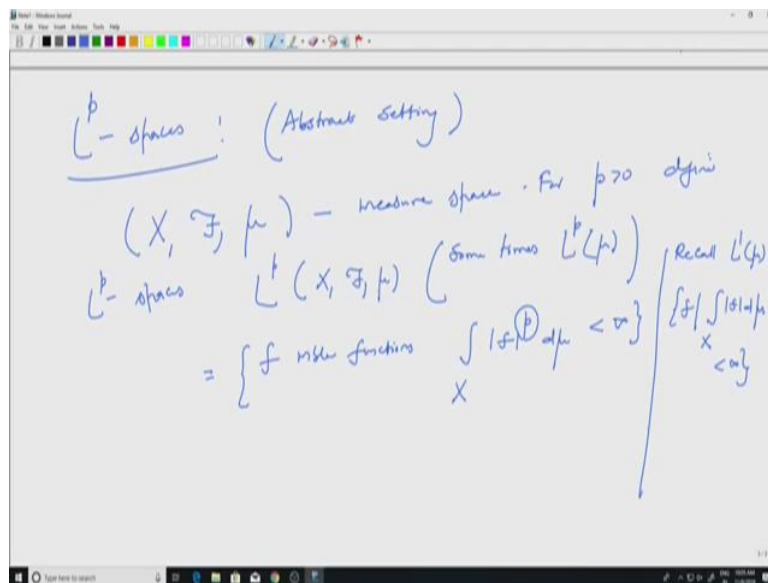 Note1 - Windows Journal
File Edit View Insert Actions Tools Help
L^p - spaces : (Abstract setting)
(X, F, μ) - measure space . For p>0 define
L^p - spaces L^p (X, F, μ) (Some times L^p(μ))
= { f mble functions ∫_X |f|^p dμ < ∞ }
Recall L^1(μ)
{f | ∫_X |f| dμ
< ∞}
Type here to search
ENG